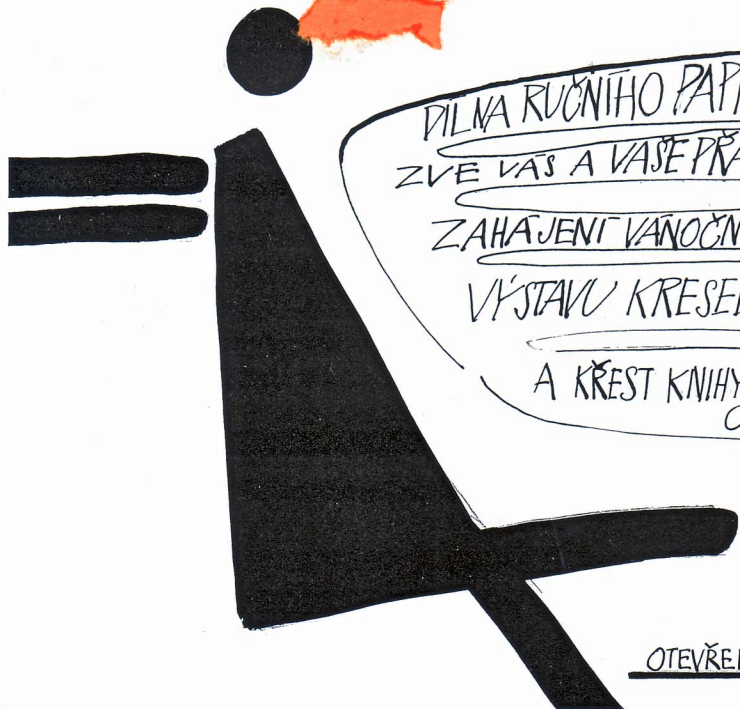 DÍLNA RUČNÍHO PAPÍ
ZVE VÁS A VAŠE PŘÁ
ZAHÁJENÍ VÁNOČN
VÝSTAVU KRESEB
A KŘEST KNIHY
OTEVŘEN